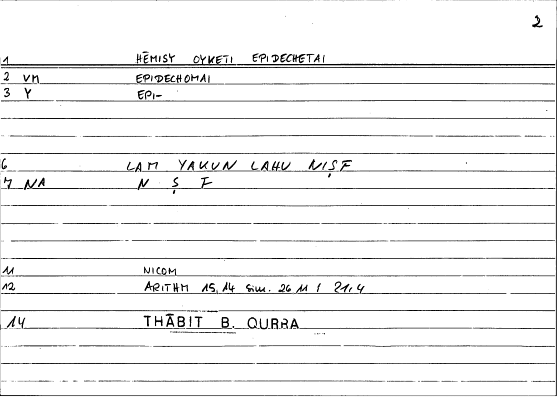 2
1 HĒMISY OYKETI EPIDECHETAI
2 VM EPIDECHOMAI
3 Y EPI-
6 LAM YAKUN LAHU NIṢF
7 NA N Ṣ F
11 NICOM
12 ARITHM 15,14 sim. 26 11 / 21,4
14 THĀBIT B. QURRA